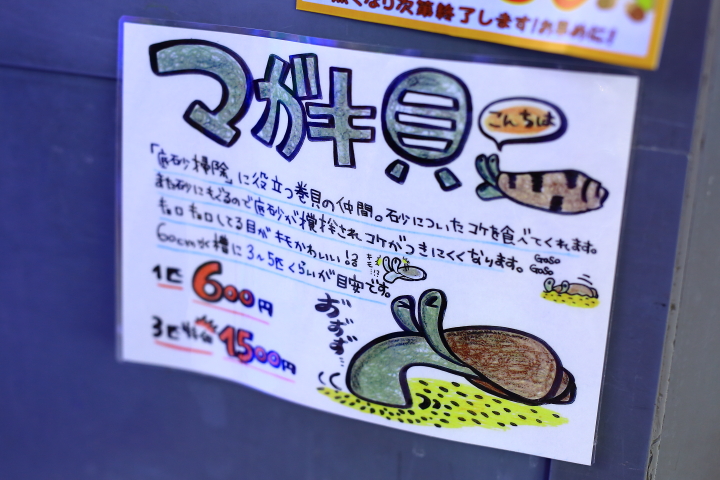 無くなり次第終了します!お早めに!
マガキ貝
こんちは
「底砂掃除」に役立つ巻貝の仲間。石砂についたコケを食べてくれます。
また砂にもぐるので底砂が撹拌されコケがつきにくくなります。
キョロキョロしてる目がキモかわいい!?
60cm水槽に3~5匹くらいが目安です。
キモ!?
GoSo
GoSo
1匹 600円
3匹 1500円
おずず…